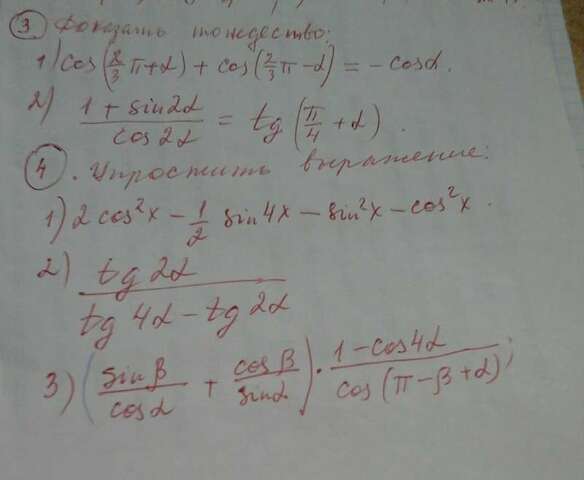 3 Доказать тождество:
1) cos(2/3 π+α) + cos(2/3 π-α) = - cosα.
2) (1 + sin2α)/(cos2α) = tg(π/4 + α).
4. Упростить выражение:
1) 2 cos²x - 1/2 sin4x - sin²x - cos²x.
2) (tg2α)/(tg4α - tg2α)
3) (sinβ/cosα + cosβ/sinα) · (1-cos4α)/(cos(π-β+α));